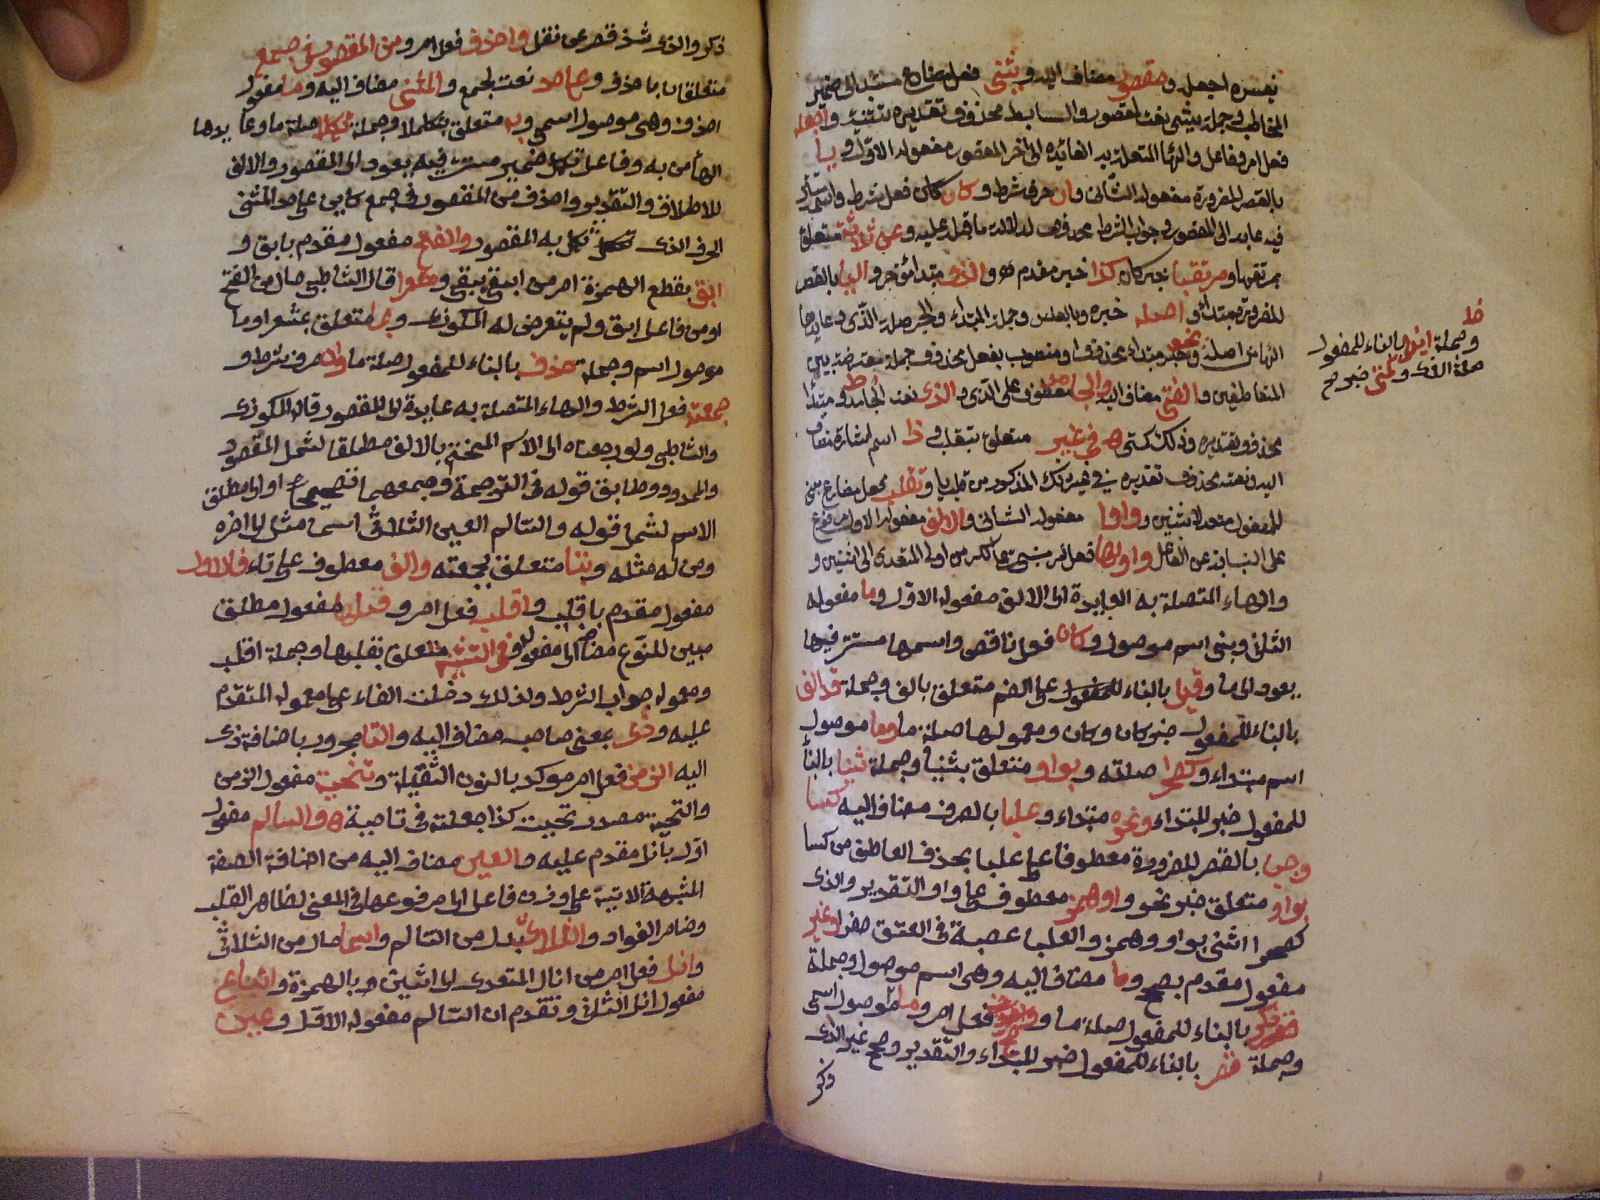 يفسره اجعل ومقصور مضاف اليه وتثنى فعل مضارع مسند الى ضمير
المخاطب وجملة تثنى نعت لمقصور والرابط محذوف تقديره تثنيه واجعله
فعل امر وفاعل والهاء المتصلة به العائدة الى آخر المقصور مفعوله الاول ويا
بالقصر للضرورة مفعوله الثاني وان حرف شرط وكان كان فعل شرط واسمه مستتر
فيه عايد الى المقصور وجواب الشرط محذوف لدلالة ما قبله عليه وعن ثلاثة متعلق
بمرتقيا ومرتقيا خبر كان كذا خبر مقدم والذي مبتدأ مؤخر واليا بالقصر
للضرورة مبتدأ واصله خبره وبالعكس وجملة المبتدأ والخبر صلة الذي وعايدها
الهاء من اصله ونحو خبر مبتدأ محذوف او منصوب بفعل محذوف جملة معترضة بين
المتعاطفين والفتى مضاف اليه والجامد معطوف على الذي والذي نعت الجامد ومبتدأ
وجملة اميل بالبناء للمفعول
صلة الذي وكمتى خبر صح
محذوف تقديره وذلك كمتى في غير متعلق بتقلب وذا اسم اشارة مضاف
اليه ونعته محذوف تقديره في غير ذلك المذكور من قبل يا وتقلب فعل مضارع مبني
للمفعول متعد لاثنين وواوا مفعوله الثاني والالف مفعوله الاول مرفوع
على النيابة عن الفاعل واولها فعل امر من اولى المتعدي الى اثنين و
والهاء المتصلة به العايدة الى الالف مفعوله الاول وما مفعوله
الثاني وهي اسم موصول وكان فعل ناقص واسمها مستتر فيها
يعود الى ما وقبل بالبناء على الضم متعلق بالف وجملة قد الف
بالبناء للمفعول خبر كان وكان ومعمولها صلة ما وما موصول
اسم مبتداء وكصحرا صلته وبواو متعلق بثنيا وجملة ثنيا بالبناء
للمفعول خبر المبتداء ونحو مبتداء وعلبا بالصرف مضاف اليه كسا
وحيا بالقصر للضرورة معطوفا على علبا بحذف العاطف من كسا
بواو متعلق خبر نحو او همز معطوف على واو التقدير والذي
كصحرا اثنى بواو وهمز والعلبا عصبة في العنق صفرا وغير
مفعول مقدم بصحح وما مضاف اليه وهي اسم موصول وجملة
ذكر بالبناء للمفعول صلة ما وصحح فعل امر وما موصول اسمي
وجملة شذ بالبناء للمفعول خبر المبتداء والتقدير وصحح غير الذي
ذكر
ذكر والذي شذ قصر على نقل واحذف فعل امر ومن المقصور في جمع
متعلقان باحذف وعلى حد نعت لجمع والمثنى مضاف اليه وما مفعول
احذف وهي موصول اسمي وبه متعلق بتكملا وجملة تكملا صلة ما وعايدها
الهاء من به وفاعل تكمل ضمير مستتر فيه يعود الى المقصور والالف
للاطلاق والتقدير واحذف من المقصور في جمع كاين على حد المثنى
الحرف الذي تكمل به المقصور والفتح مفعول مقدم بابق و
ابق بقطع الهمزة امر من ابقى يبقى ومشعرا قال الشاطبي حال من الفتح
او من فاعل ابق ولم يتعرض له المكودي وبما متعلق بمشعر او ما
موصول اسم وجملة حذف بالبناء للمفعول صلة ما وان حرف شرط و
جمعته فعل الشرط والهاء المتصلة به عايدة الى المقصور قاله المكودي
والشاطبي ولو رجعناه الى الاسم المختم بالالف مطلقا لشمل المقصور
والممدود وطابق قوله في الترجمة وجمعهما تصحيحا او الى مطلق
الاسم لشمل قوله والسالم العين الثلاثي اسما مثل الى اخره
ومن له مثله وبتا متعلق بجمعته والف معطوف على تاء فالالف
مفعول مقدم باقلب واقلب فعل امر وقلبها مفعول مطلق
مبين للنوع مضاف الى مفعوله وفي التثنية متعلق بقلبها وجملة اقلب
ومعموله جواب الشرط ولذلك دخلت الفاء على معموله المتقدم
عليه وذي بمعنى صاحب مضاف اليه والتا مجرور باضافة ذي
اليه الزمن فعل امر موكد بالنون الثقيلة وتنحية مفعول الزمن
والتنحية مصدر نحيت كذا جعلته في ناحية والسالم مفعول
اول بانل مقدم عليه والعين مضاف اليه من اضافة الصفة
المشبهة الاتية على وزن فاعل الى مرفوعها في المعنى لظاهر القلب
وضامر الفواد والثلاثي بدل من السالم واسما حال من الثلاثي
وانل فعل امر من انال المتعدي الى اثنين وبالهمزة واتباع
مفعول انل الثاني وتقدم ان السالم مفعوله الاول وعين